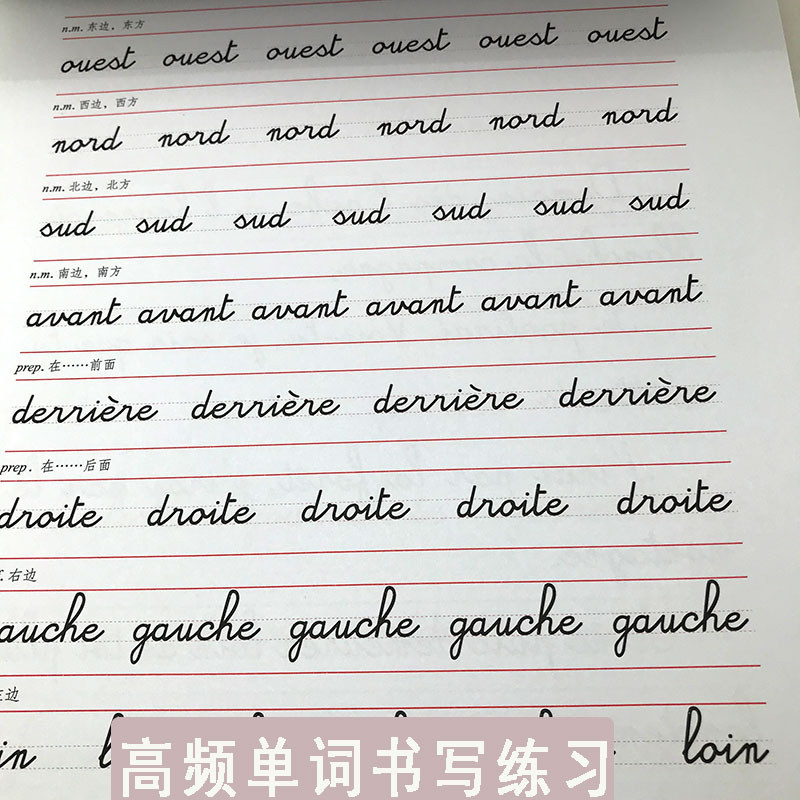 n.m. 东边，东方
ouest ouest ouest ouest ouest ouest
n.m. 西边，西方
nord nord nord nord nord nord
n.m. 北边，北方
sud sud sud sud sud sud sud
n.m. 南边，南方
avant avant avant avant avant avant
prep. 在……前面
derrière derrière derrière derrière
prep. 在……后面
droite droite droite droite droite
f. 右边
auche gauche gauche gauche gauche
左边
in loin
高频单词书写练习